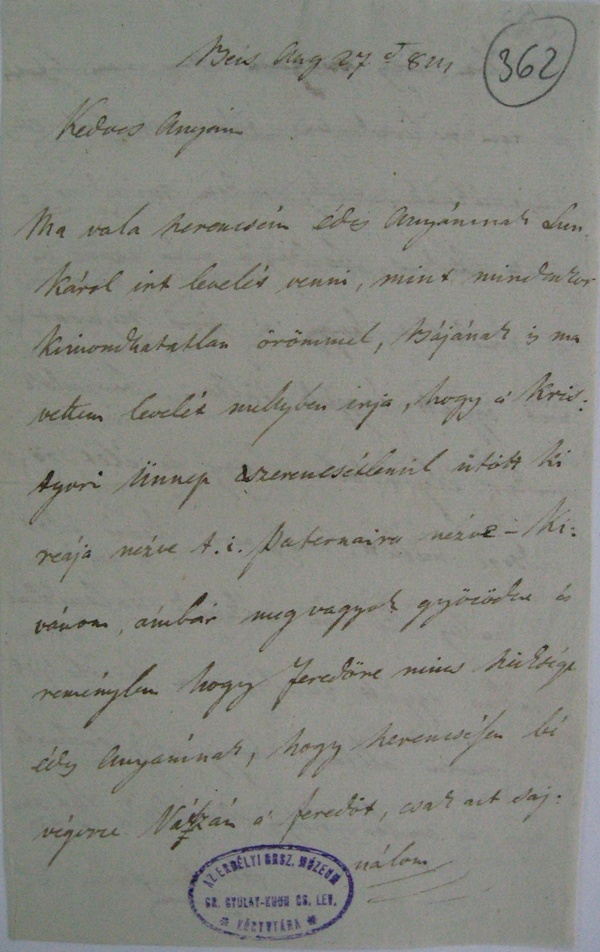 Bécs Aug 27
362
Kedves Anyám
Ma vala szerencsém édes Anyámnak Lun-
károl irt levelét venni, mint mindenkor
kimondhatatlan örömmel, Bájának is ma
vettem levelét mellyben irja, hogy a Kris:
tyori Ünnep szerencsétlenül ütött ki
reája nézve t. i. Paternaira nézve – Ki:
vánom, ámbár meg vagyok győződve és
reménylem hogy feredőre nincs szüksége
édes Anyámnak, hogy szerencsésen bé
végezze a feredőt, csak azt saj:
nálom
AZ ERDÉLYI ORSZ. MÚZEUM
GR. GYULAY-KUUN CS. LEV.
KÖNYVTÁRA